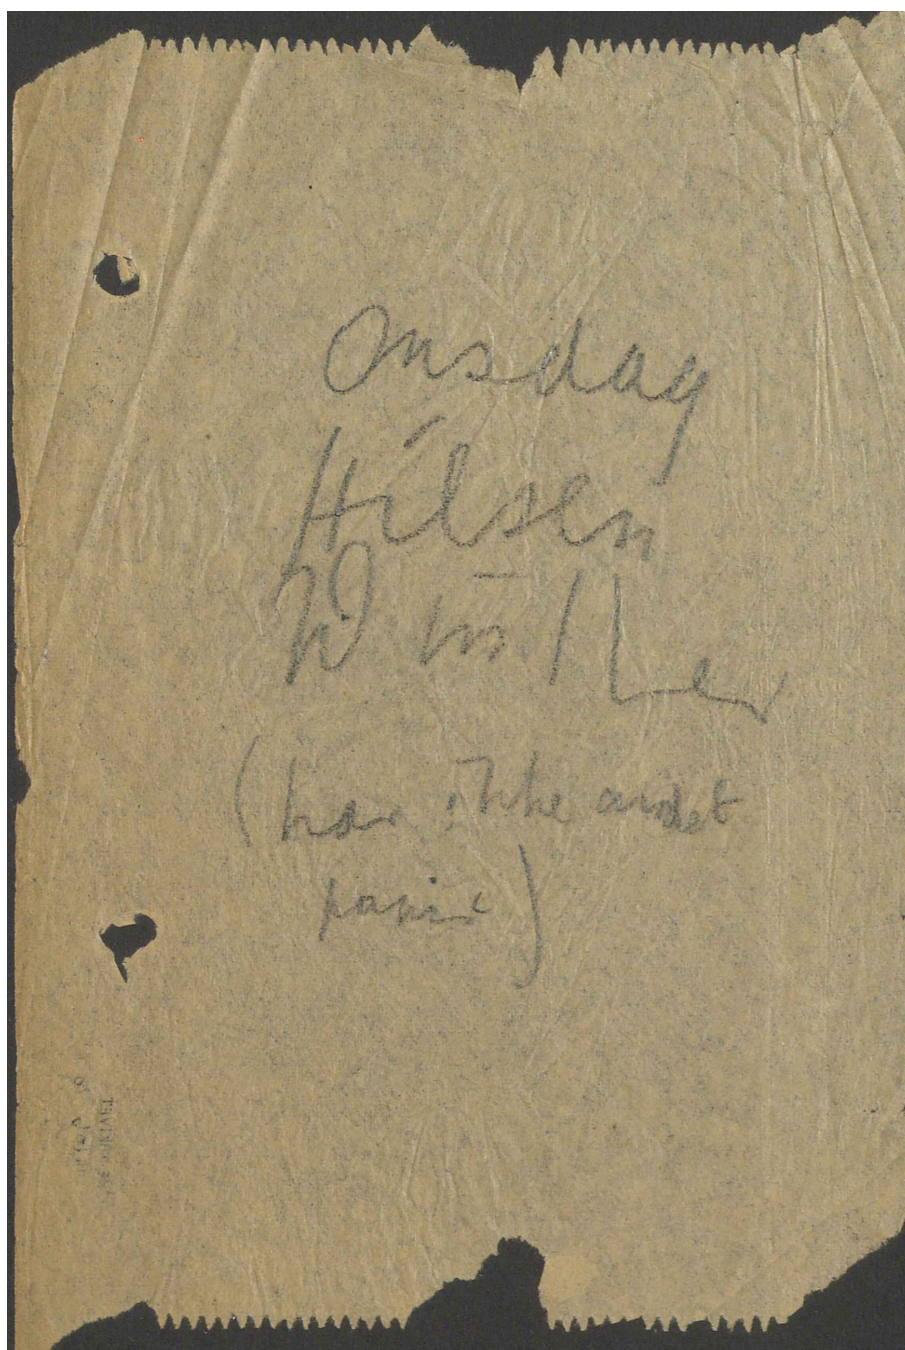 Onsdag
Hilsen
Winther
(har ikke andet
papir)